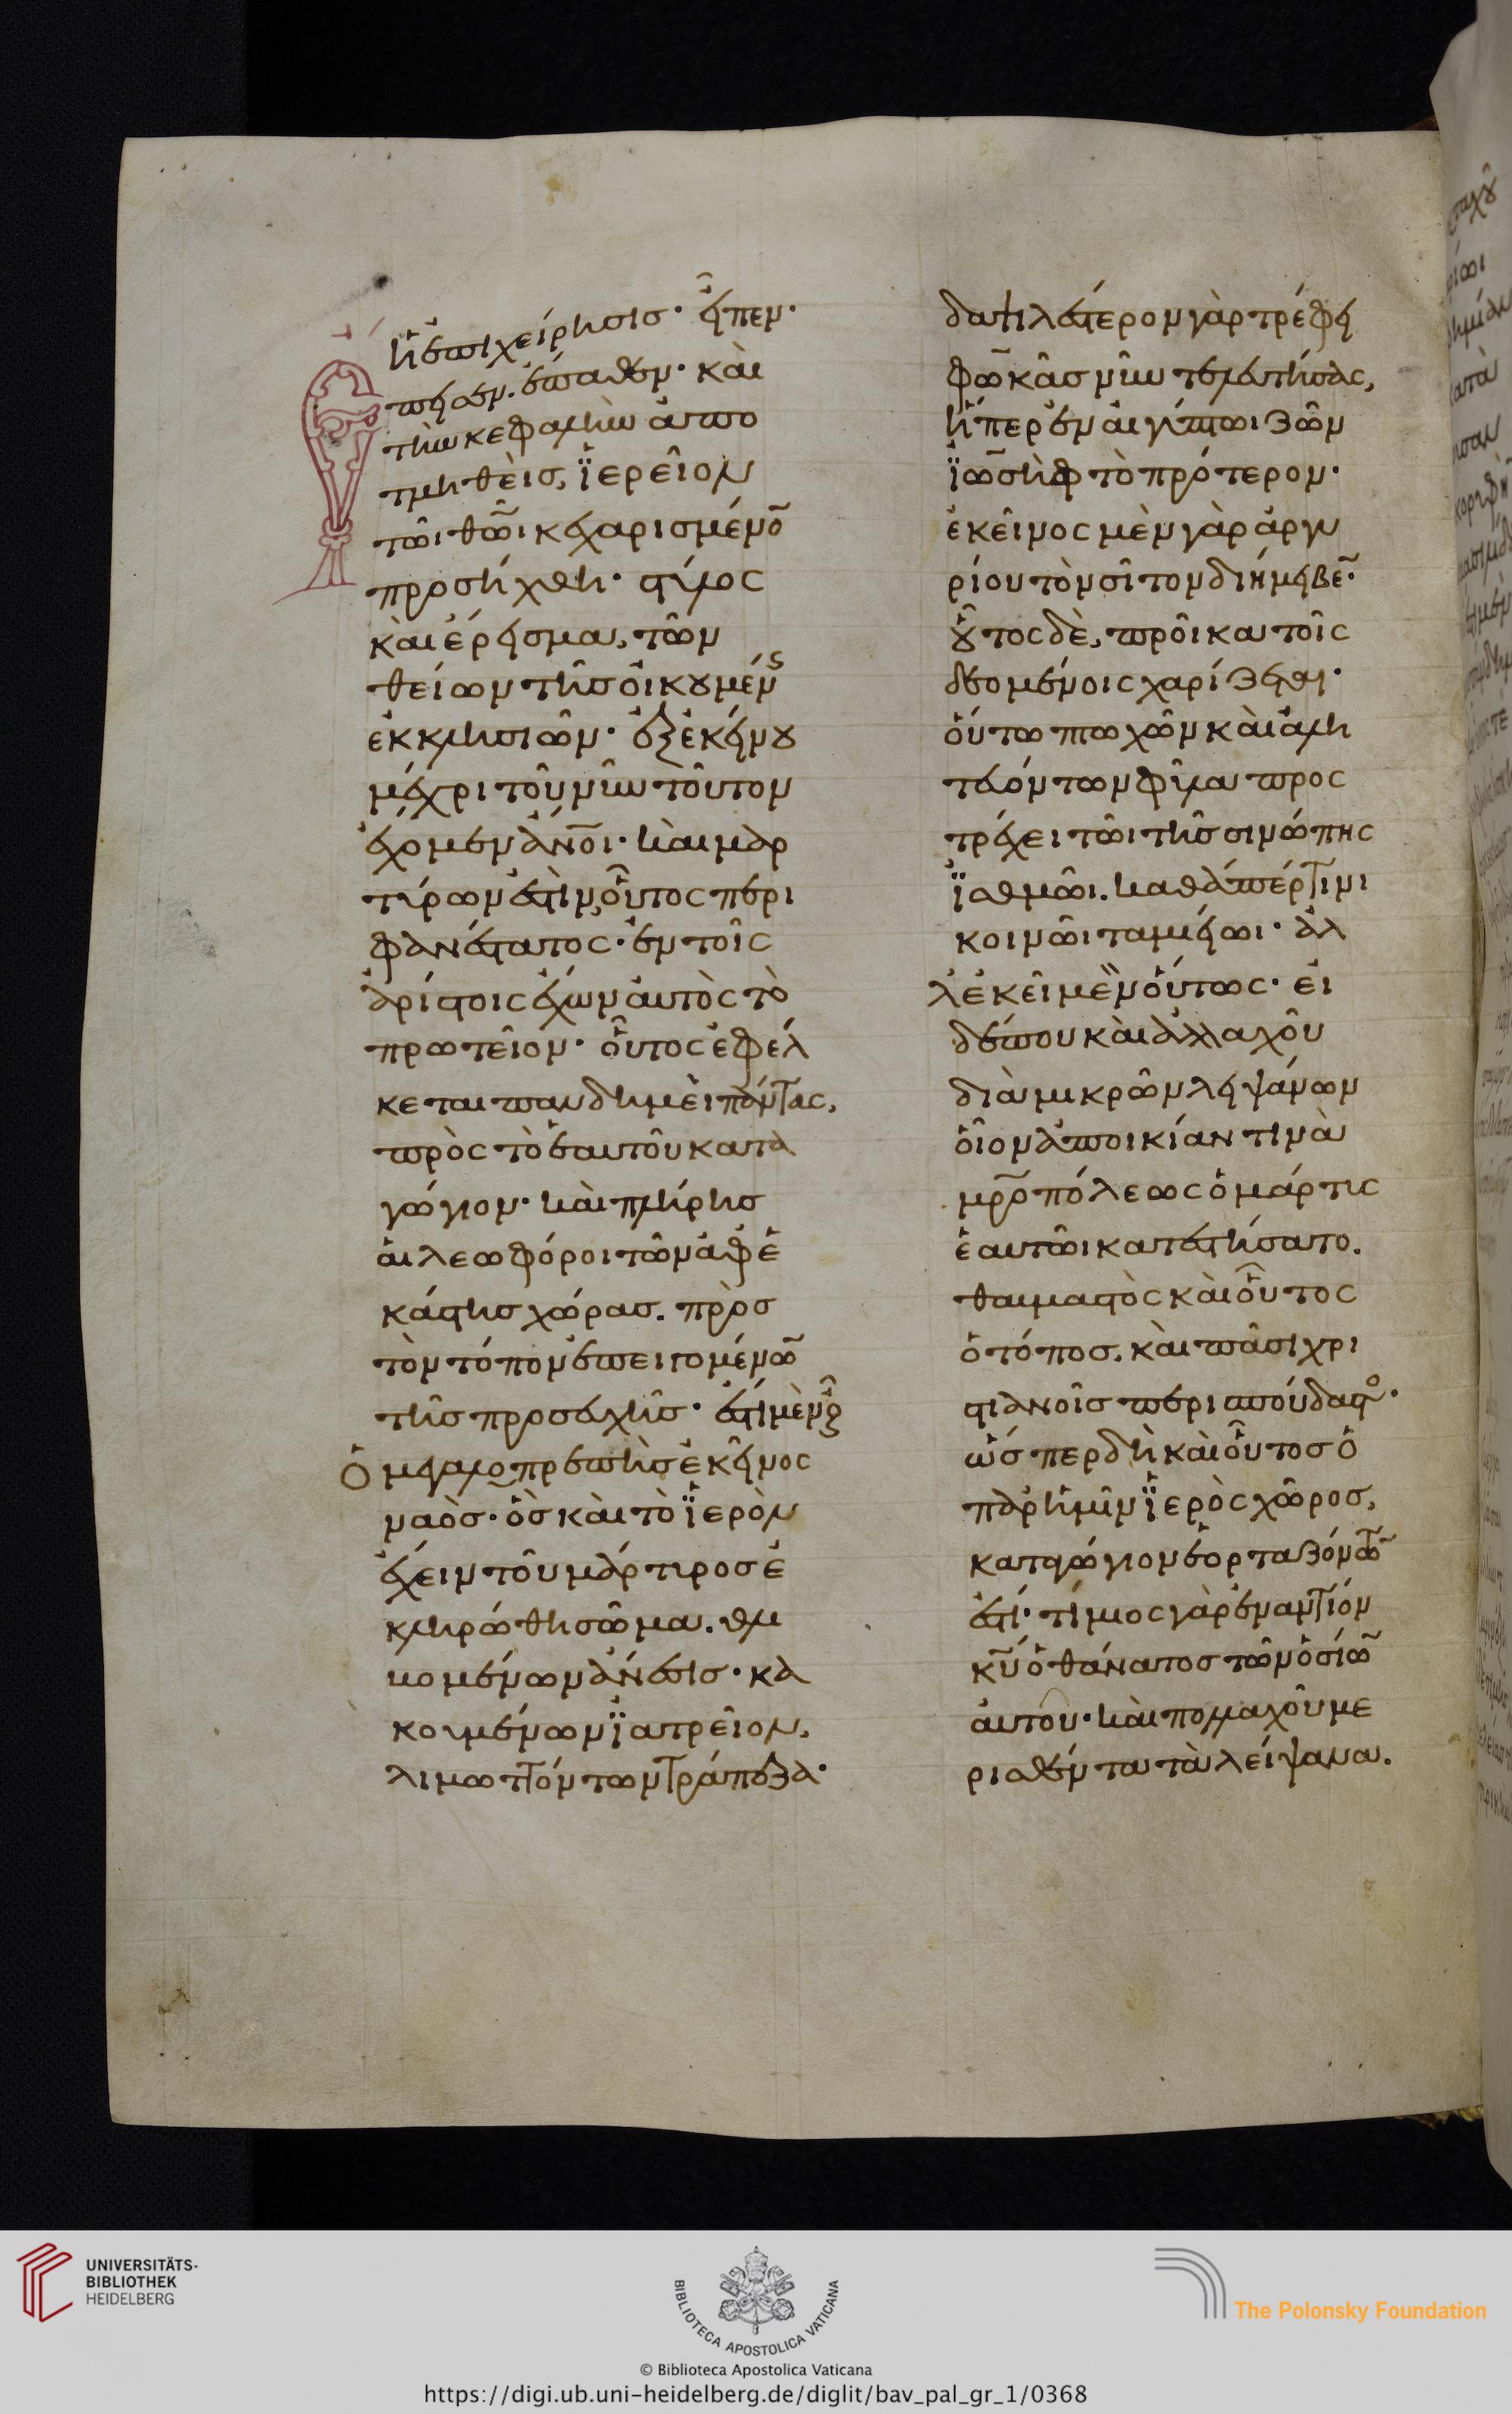 ἡ ἐπιχείρησις· εἶπεν·
ἔπαθεν· καὶ
τὴν κεφαλὴν ἀπο
τμηθεὶς, ϊερεῖον
τῶι θῶι κεχαρισμένον
προσήχθη· στύλος
καὶ ἔρεισμα, τῶν
θείων τῆς οἰκουμένης
ἐκκλησιῶν· ἐξ ἐκείνου
μέχρι τοῦ νῦν τοῦτον
ἔχομεν ἄνοι· καὶ μαρ
τύρων ἐστὶν οὗτος περι
φανέστατος· ἐν τοῖς
ἀρίστοις ἔχων αὐτὸς τὸ
πρωτεῖον· οὗτος ἐφέλ
κεται πανδημεὶ πάντας,
πρὸς τὸ ἑαυτοῦ κατα
γώγιον· καὶ πλήρης
αἱ λεωφόροι τῶν ἀφ ἑ
κάστης χώρας. πρὸς
τὸν τόπον ἐπειγομένων
τῆς προσευχῆς· ἐστὶ μὲν
ὁ μεγαλοπρεπὴς ἐκεῖνος
ναὸς· ὃς καὶ τὸ ϊερὸν
ἔχειν τοῦ μάρτυρος ἐ
κληρώθη σῶμα. θλι
βομένων ἄνεσις· κα
κουμένων ϊατρεῖον,
λιμωττόντων τράπεζα·
δαψιλέστερον γὰρ τρέφει
φωκᾶς νῦν τελευτήσας,
ἥπερ ἐν αἰγύπτωι ζῶν
ϊωσὴφ τὸ πρότερον·
ἐκεῖνος μὲν γὰρ ἀργυ
ρίου τὸν σῖτον διήμειβεν·
οὗτος δὲ, προῖκα τοῖς
δεομένοις χαρίζεται·
οὕτω πτωχῶν καὶ ἀλη
τευόντων φῦλα προσ
τρέχει τῶι τῆς σινώπης
ϊσθμῶι. καθάπερ τινι
κοινῶι ταμιείωι· ἀλ
λ ἐκεῖ μὲν οὕτως· εἰ
δέ που καὶ ἀλλαχοῦ
διὰ μικρῶν λειψάνων
οἷον ἀποικίαν τινὰ
μρ̅οπόλεως ὁ μάρτυς
ἑαυτῶι κατεστήσατο.
θαυμαστὸς καὶ οὗτος
ὁ τόπος. καὶ πᾶσι χρι
στιανοῖς περισπούδαστος·
ὥσπερ δὴ καὶ οὗτος ὁ
παρ ἡμῖν ϊερὸς χῶρος,
καταγώγιον ἑορταζόντων
ἐστί· τίμιος γὰρ ἐναντίον
κυ̅ ὁ θάνατος τῶν ὁσίων
αὐτοῦ· καὶ πολλαχοῦ με
ρισθέντα τὰ λείψανα.
UNIVERSITÄTS-
BIBLIOTHEK
HEIDELBERG
BIBLIOTECA APOSTOLICA VATICANA
The Polonsky Foundation
© Biblioteca Apostolica Vaticana
https://digi.ub.uni-heidelberg.de/diglit/bav_pal_gr_1/0368